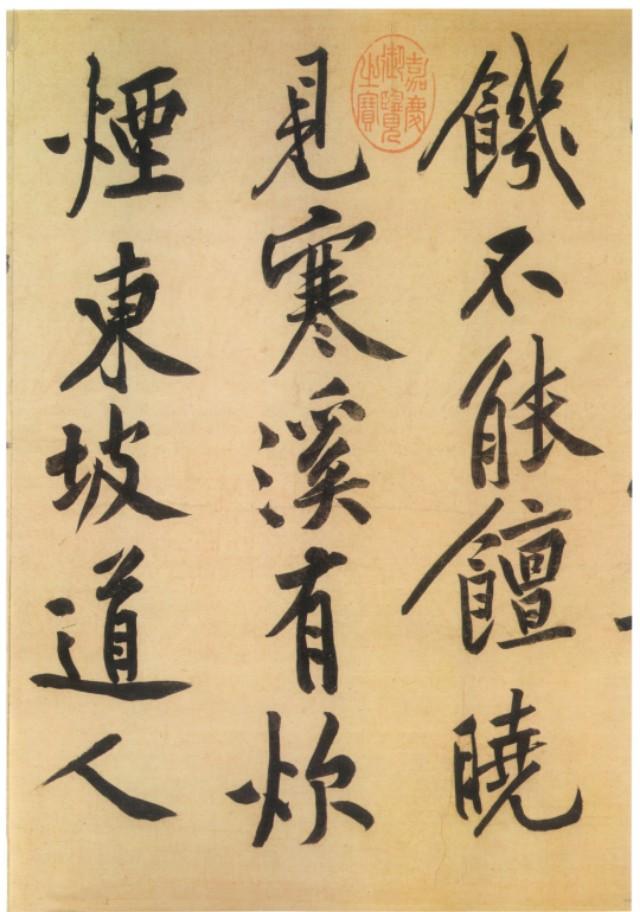 饑不能饘曉
見寒溪有炊
煙東坡道人
嘉慶御覽之寶